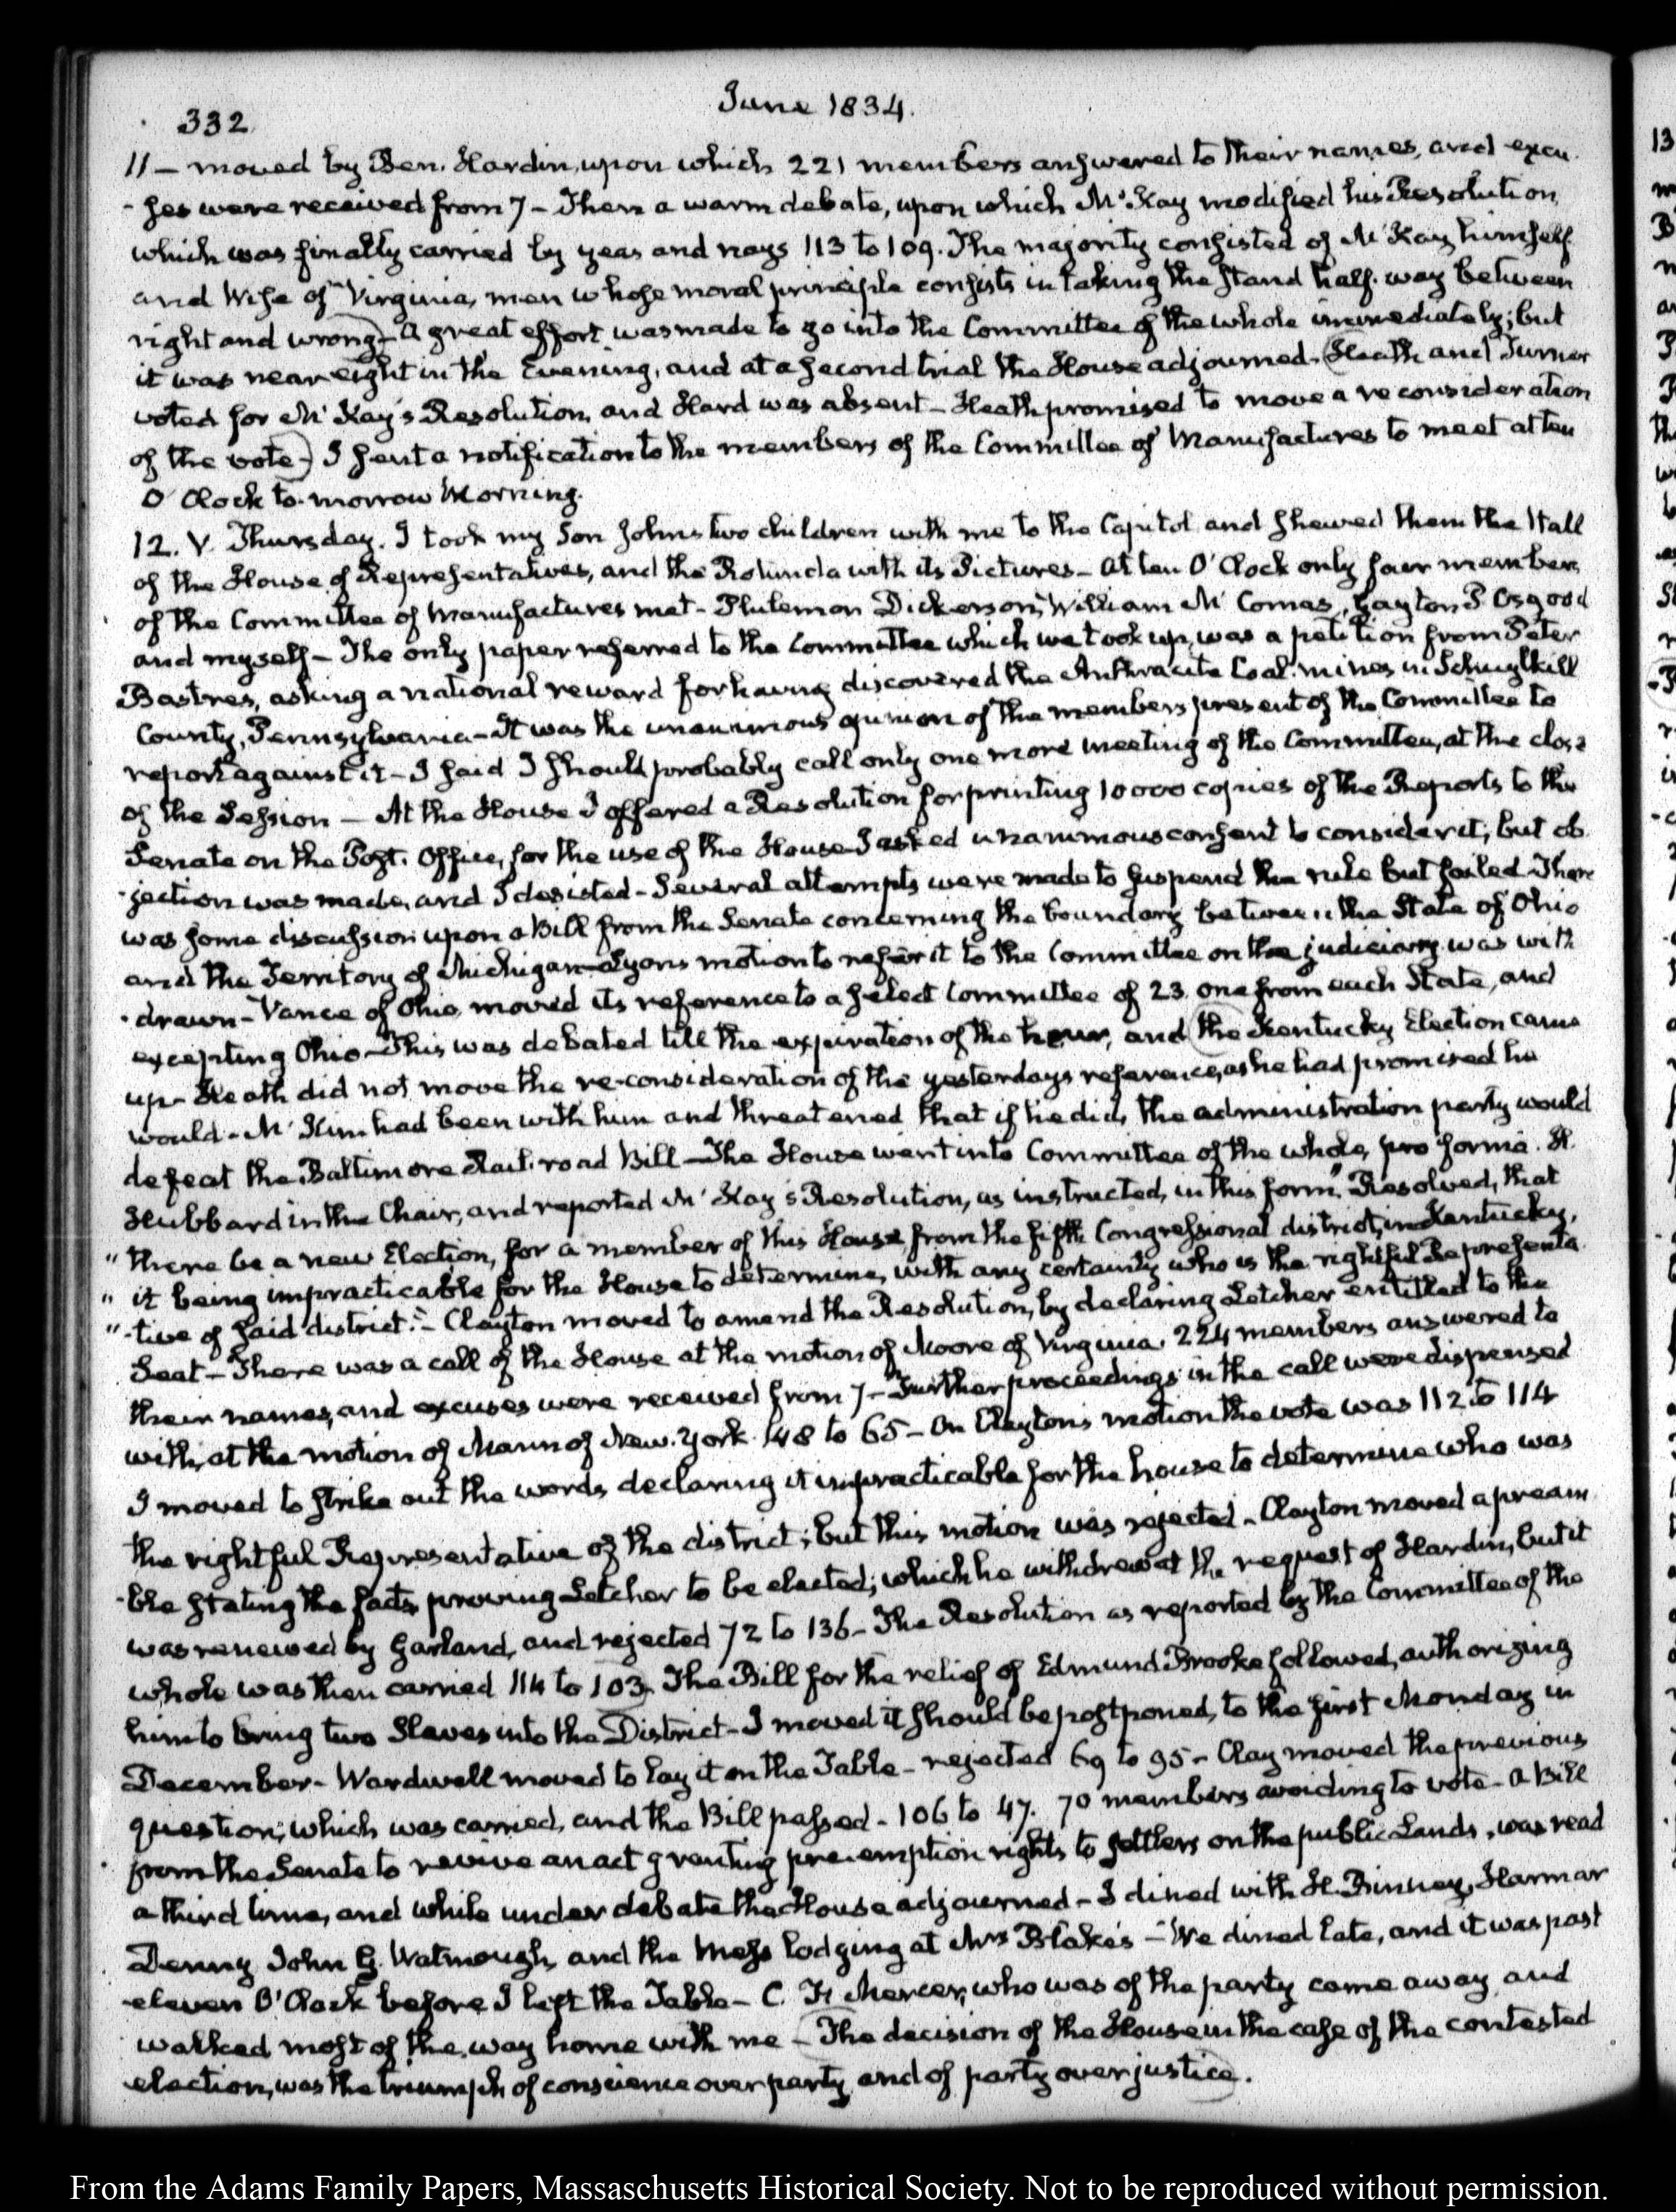 332
June 1834.
11 — moved by Ben. Hardin, upon which 221 members answered to their names, and excu
-ses were received from 7 – Then a warm debate, upon which McKay modified his Resolution,
which was finally carried by yeas and nays 113 to 109. The majority consisted of McKay himself
and Wise of Virginia, men whose moral principle consists in taking the stand half-way between
right and wrong – A great effort was made to go into the Committee of the whole immediately; but
it was near eight in the Evening, and at a second trial the House adjourned. (Heath and Turner
voted for McKay's Resolution, and Hard was absent – Heath promised to move a reconsideration
of the vote –) I sent a notification to the members of the Committee of Manufactures to meet at ten
O'Clock to-morrow Morning.
12. V. Thursday. I took my Son John's two children with me to the Capitol and shewed them the Hall
of the House of Representatives, and the Rotunda with its Pictures – At ten O'Clock only four members
of the Committee of Manufactures met – Philemon Dickerson, William McComas, Gayton P. Osgood
and myself – The only paper referred to the Committee which we took up, was a petition from Peter
Bastres, asking a national reward for having discovered the Anthracite Coal-mines in Schuylkill
County, Pennsylvania – It was the unanimous opinion of the members present of the Committee to
report against it – I said I should probably call only one more meeting of the Committee, at the close
of the Session — At the House I offered a Resolution for printing 10000 copies of the Reports to the
Senate on the Post-Office, for the use of the House I asked unanimous consent to consider it; but ob
-jection was made, and I desisted – Several attempts were made to suspend the rule but failed There
was some discussion upon a Bill from the Senate concerning the boundary between the State of Ohio
and the Territory of Michigan – Lyons motion to refer it to the Committee on the judiciary was with
-drawn – Vance of Ohio moved its reference to a select Committee of 23. one from each State, and
excepting Ohio – This was debated till the expiration of the hour, and (the Kentucky Election came
up – Heath did not move the re-consideration of the yesterdays reference, as he had promised he
would – McKim had been with him and threatened that if he did, the administration party would
defeat the Baltimore Rail-road Bill – The House went into Committee of the whole, pro forma. H.
Hubbard in the Chair, and reported McKay's Resolution, as instructed, in this form, "Resolved, that
" there be a new Election, for a member of this House from the fifth Congressional district, in Kentucky,
" it being impracticable for the House to determine, with any certainty who is the rightful Representa
" -tive of said district." – Clayton moved to amend the Resolution, by declaring Letcher entitled to the
Seat – There was a call of the House at the motion of Moore of Virginia. 224 members answered to
their names, and excuses were received from 7 – Further proceedings in the call were dispensed
with, at the motion of Mann of New-York 148 to 65 – On Clayton's motion the vote was 112 to 114
I moved to strike out the words declaring it impracticable for the house to determine who was
the rightful Representative of the district; but this motion was rejected – Clayton moved a pream
-ble stating the facts, proving Letcher to be elected; which he withdrew at the request of Hardin, but it
was renewed by Garland, and rejected 72 to 136 – The Resolution as reported by the Committee of the
whole was then carried 114 to 103. The Bill for the relief of Edmund Brooke followed, authorizing
him to bring two Slaves into the District – I moved it should be postponed, to the first Monday in
December – Wardwell moved to lay it on the Table – rejected 69 to 95 – Clay moved the previous
question; which was carried, and the Bill passed – 106 to 47. 70 members avoiding to vote – A Bill
from the Senate to revive an act granting pre-emption rights to settlers on the public Lands, was read
a third time, and while under debate the House adjourned – I dined with H. Binney, Harmar
Denny, John G. Watmough, and the Mess lodging at Mrs Blake's – We dined late, and it was past
eleven O'Clock before I left the Table – C. F. Mercer, who was of the party came away and
walked most of the way home with me – (The decision of the House in the case of the contested
election, was the triumph of conscience over party, and of party over justice).
From the Adams Family Papers, Massaschusetts Historical Society. Not to be reproduced without permission.